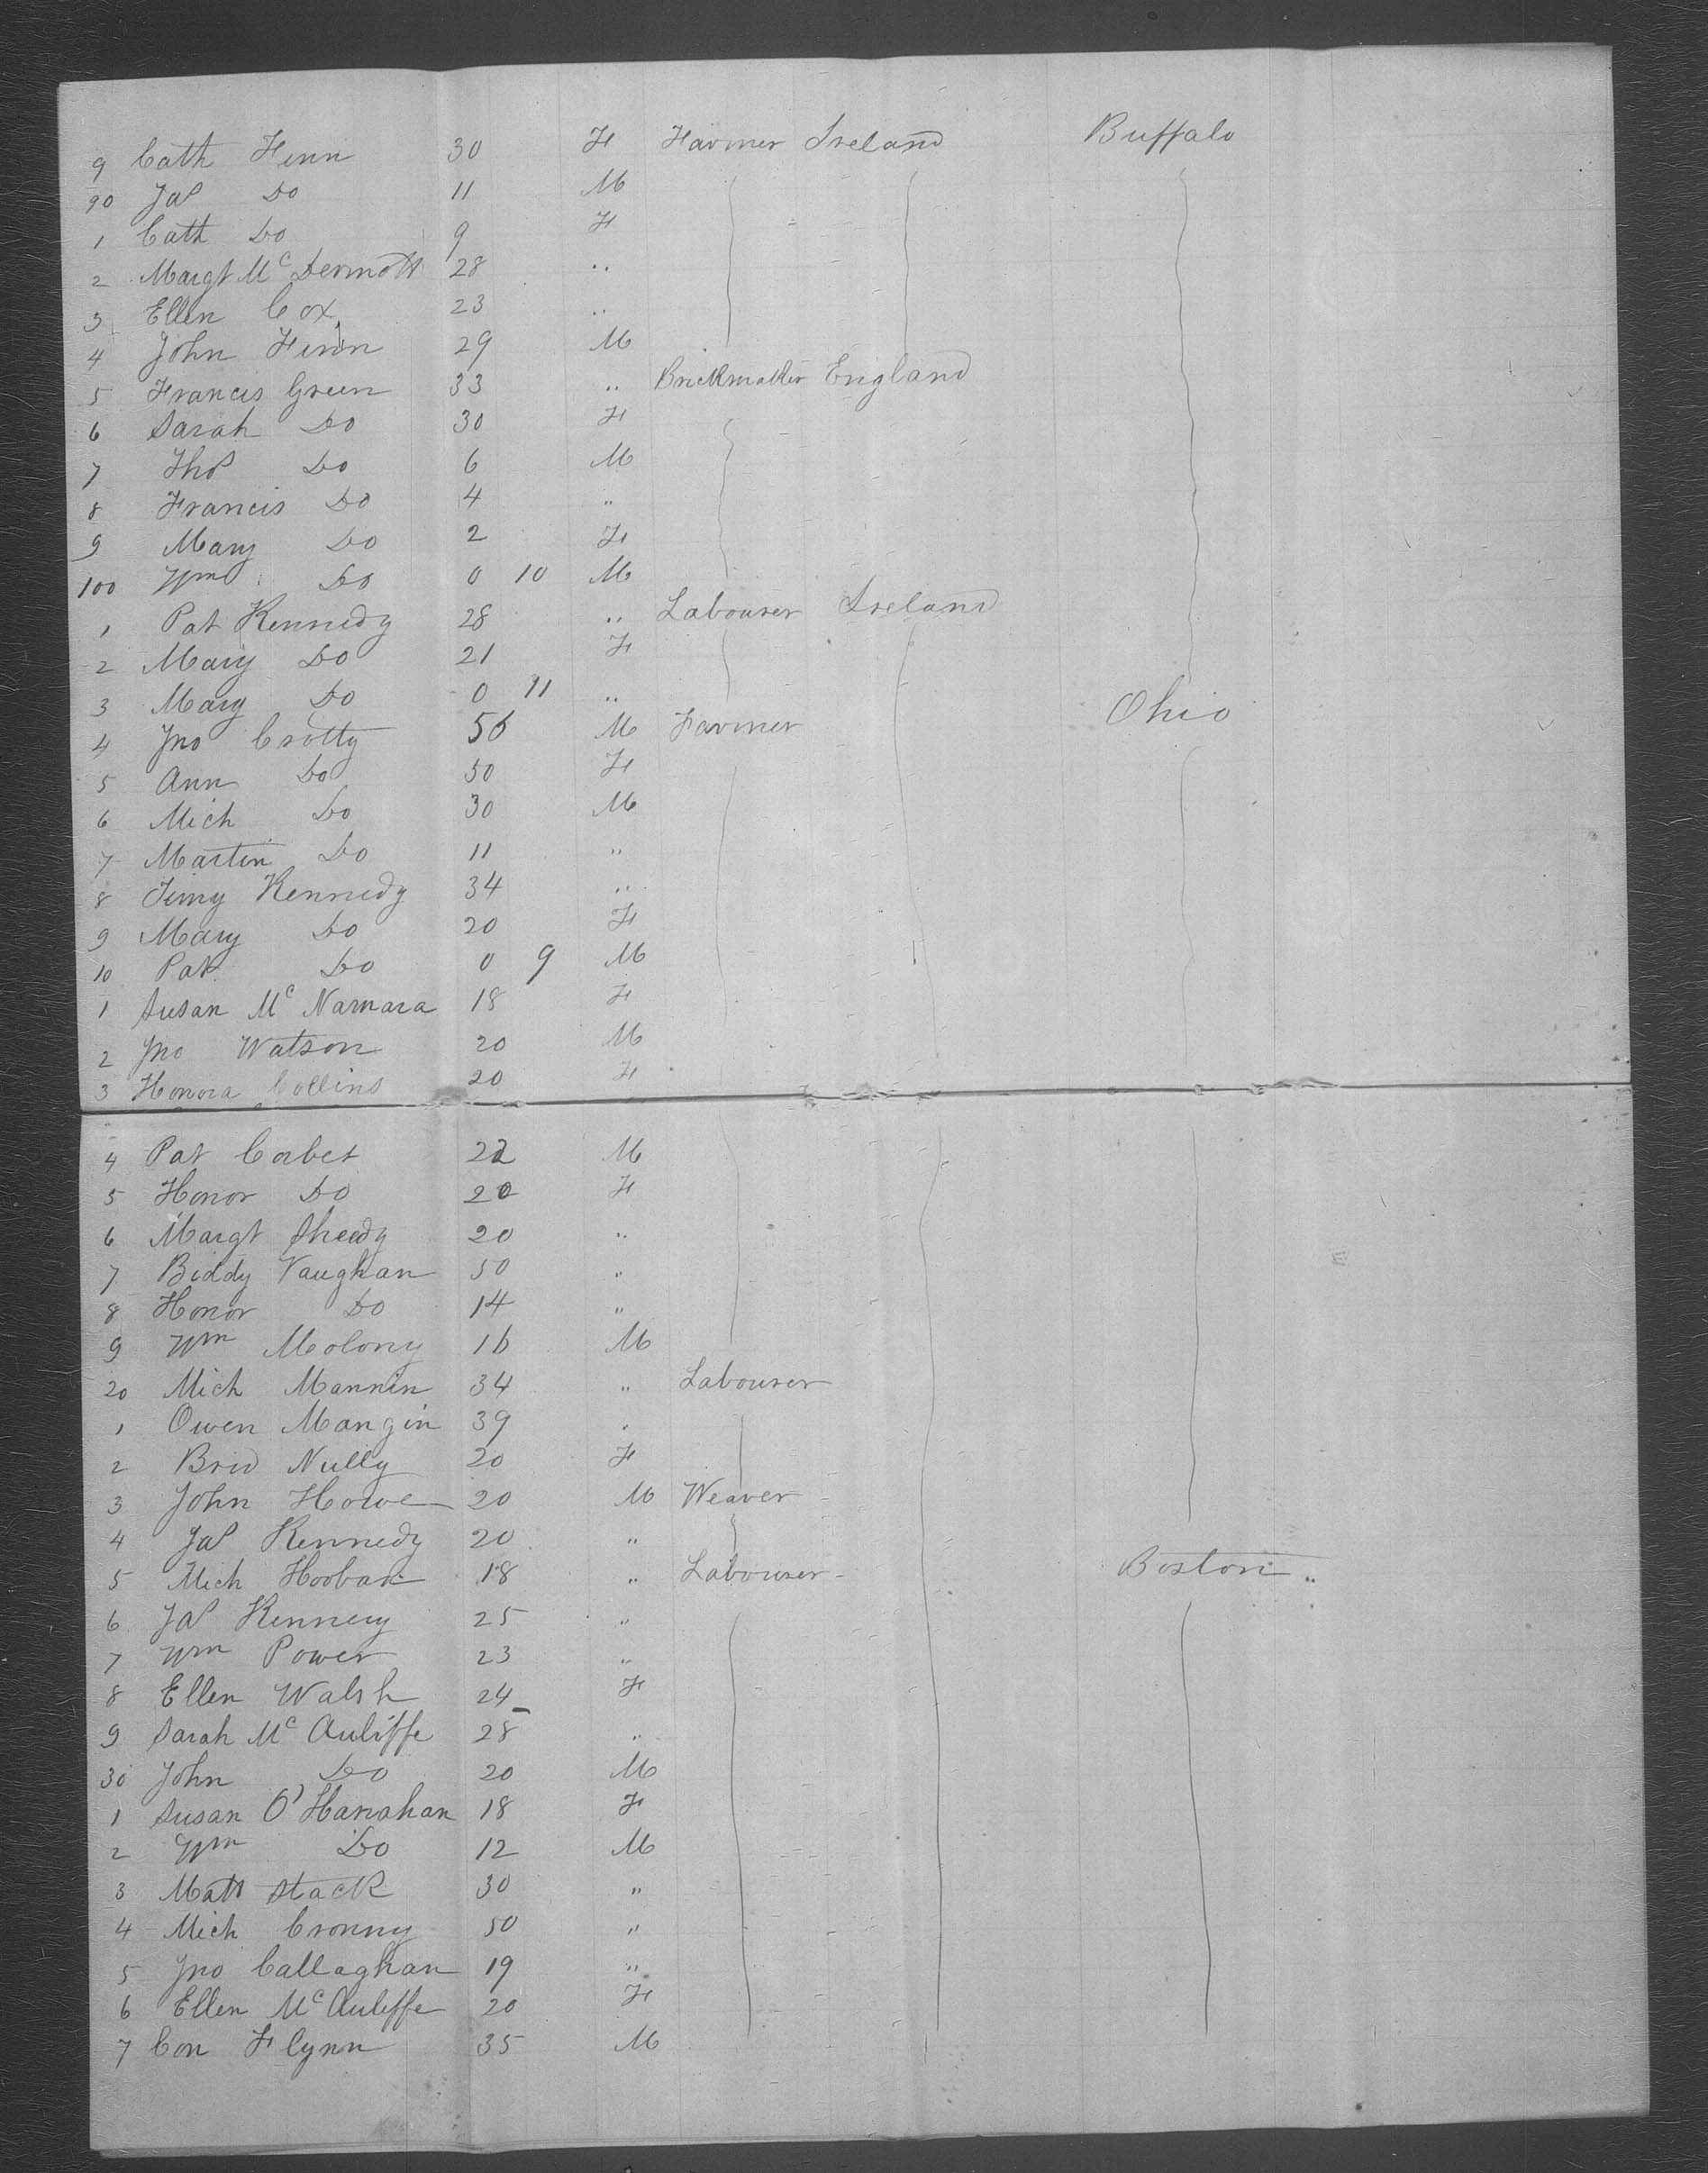 9 Cath Finn 30 F Farmer Ireland Buffalo
90 Jas Do 11 M
1 Cath Do 9 F
2 Margt McDermott 28 "
3 Ellen Cox 23 "
4 John Finn 29 M
5 Francis Green 33 " Brickmaker England
6 Sarah Do 30 F
7 Thos Do 6 M
8 Francis Do 4 "
9 Mary Do 2 F
100 Wm Do 0 10 M
1 Pat Kennedy 28 " Labourer Ireland
2 Mary Do 21 F
3 Mary Do 0 11 "
4 Jno Crotty 56 M Farmer Ohio
5 Ann Do 50 F
6 Mich Do 30 M
7 Martin Do 11 "
8 Timy Kennedy 34 "
9 Mary Do 20 F
10 Pat Do 0 9 M
1 Susan McNamara 18 F
2 Jno Watson 20 M
3 Honora Collins 20 F
4 Pat Corbet 22 M
5 Honor Do 20 F
6 Margt Sheedy 20 "
7 Biddy Vaughan 50 "
8 Honor Do 14 "
9 Wm Molony 16 M
20 Mich Mannin 34 " Labourer
1 Owen Mangin 39 "
2 Brid Nully 20 F
3 John Howe 20 M Weaver
4 Jas Kennedy 20 "
5 Mich Hooban 18 " Labourer Boston "
6 Jas Kennery 25 "
7 Wm Power 23 "
8 Ellen Walsh 24 F
9 Sarah McAuliffe 28 "
30 John Do 20 M
1 Susan O'Hanahan 18 F
2 Wm Do 12 M
3 Matt Stack 30 "
4 Mich Cronny 50 "
5 Jno Callaghan 19 "
6 Ellen McAuliffe 20 F
7 Con Flynn 35 M